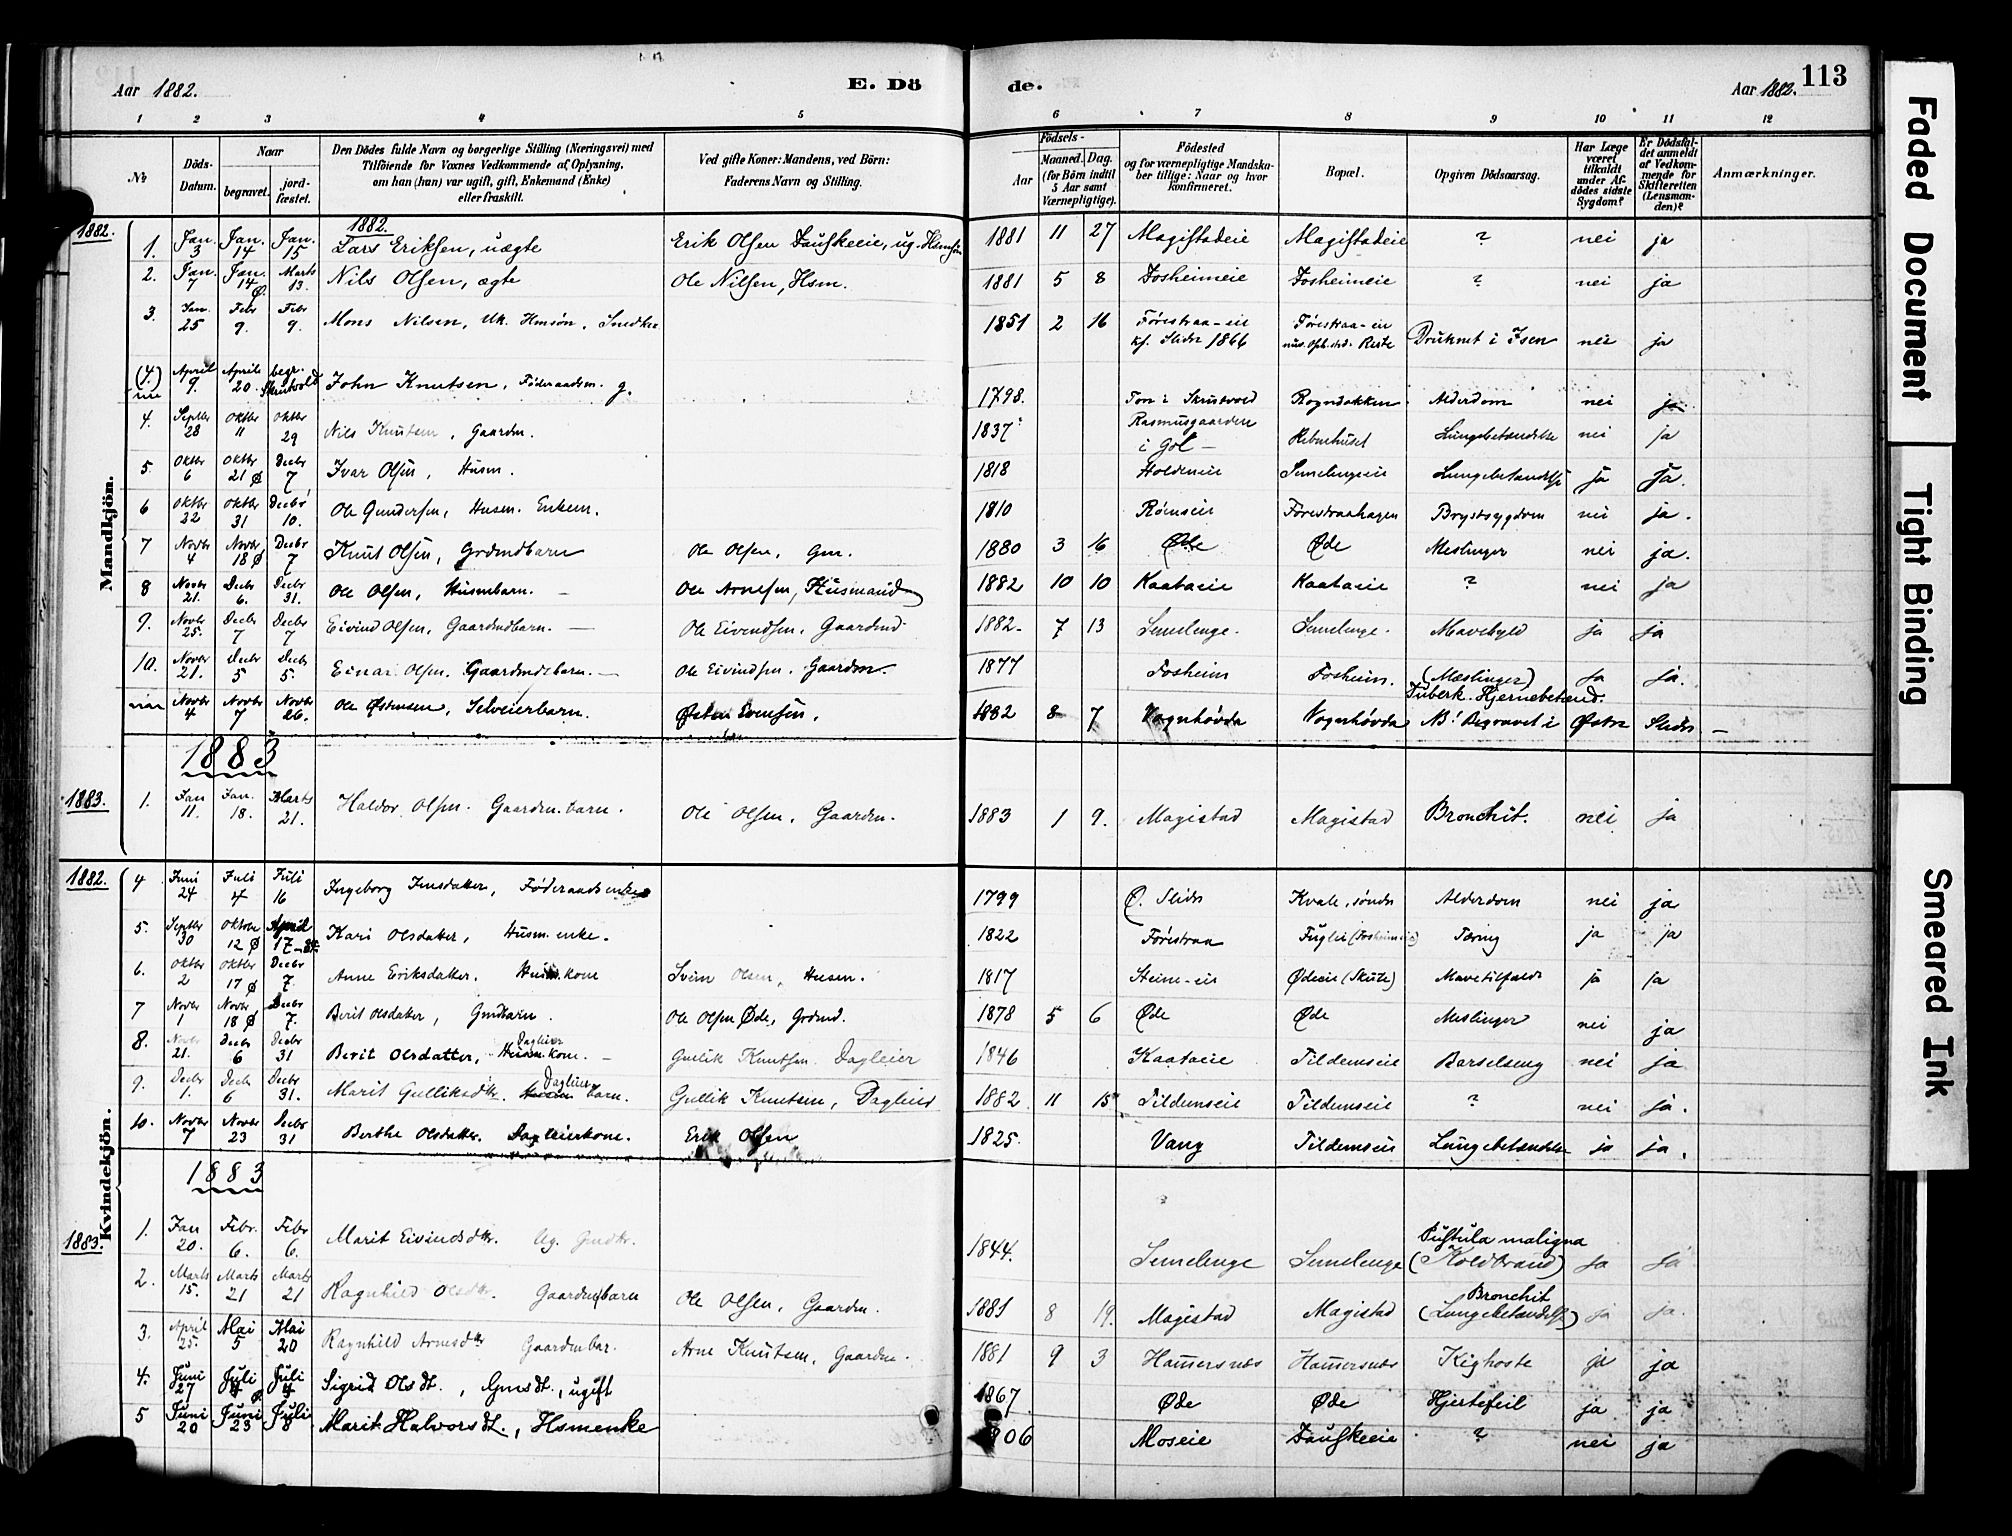 Aar 1882.
E. Dö
de.
Aar 1882.
113
1 2 3 4 5 6 7 8 9 10 11 12
№
Döds-Datum.
Naar begravet. jordfæstet.
Den Dödes fulde Navn og borgerlige Stilling (Næringsvei) med Tilföiende for Voxnes Vedkommende af Oplysning, om han (hun) var ugift, gift, Enkemand (Enke) eller fraskilt.
Ved gifte Koner: Mandens, ved Börn: Faderens Navn og Stilling.
Födsels- Aar Maaned. Dag. (for Börn indtil 5 Aar samt Værnepligtige).
Födested og for værnepligtige Mandskaber tillige: Naar og hvor konfirmeret.
Bopæl.
Opgiven Dödsaarsag.
Har Læge været tilkaldt under Afdödes sidste Sygdom?
Er Dödsfaldet anmeldt af Vedkommende for Skifteretten (Lensmanden)?
Anmærkninger.
Mandkjön.
1882.
1882.
1. Jan. 3 Jan. 14 Jan. 15 Lars Eriksen, uægte Erik Olsen Dauskeeie, ug. 1881 11 27 Magistadeie Magistadeie ? nei ja
2. Jan. 7 Jan. 14 Ø. Marts 13. Nils Olsen, ægte Ole Nilsen, Hsm. 1881 5 8 Fosheimeie Fosheimeie ? nei ja
3. Jan. 25 Febr 9. Febr 9. Mons Nilsen, Uk. Hmsøn, Snedker 1851 2 16 Førestraa-eie kf. Slidre 1866 Førestraa-eie Druknet i nei ja
(4.) April 9. April 20. begr. Skrutvold John Knutsen, Føderaadsm. g. 1798. Ton i Skrutvold Rogndokken Alderdom nei ja
4. Septbr 28 Oktbr 11 Oktbr 29 Nils Knutsen, Gaardm. 1837 Rasmusgaarden i Gol Lungebetændelse nei ja
5. Oktbr 6 Oktbr 21 Ø Decbr 7 Ivar Olsen, Husm. 1818 Holdeneie Semelengeeie Lungebetændelse ja ja.
6 Oktbr 22 Oktbr 31 Decbr 10. Ole Gundersen, Husm. Enkem. 1810 Rømseie Førestraahagen Brystsygdom nei ja.
7 Novbr 4 Novbr. 18 Ø Decbr 7 Knut Olsen, Grdmdbarn Ole Olsen, Gm. 1880 3 16 Øde Øde Meslinger nei ja.
8 Novbr 21. Decbr 6. Decbr 31. Ole Olsen, Husmbarn. Ole Arnesen, Husmand 1882 10 10 Kaataeie Kaataeie ? nei ja
9. Novbr 25. Decbr 7 Decbr 7 Eivind Olsen, Gaardmdbarn. Ole Eivendsen, Gaardmd. 1882 7 13 Semelenge. Semelenge. Mavebyld ja ja
10. Novbr 21. Decbr 5 Decbr 5. Einar Olsen, Gaardmdsbarn. Ole Eivindsen, Gaardm. 1877 Fosheim Fosheim. (Mæslinger) Tuberk. Hjernebetænd. ja ja.
Novbr 4 Novbr 7 Novbr 26. Ole Østensen, Selveierbarn. Østen Evensen, 1882 8 7 Vognhøvda Vognhøvda NB! Begravet i Østre Slidre
1883
1883. 1. Jan 11. Jan. 18. Marts 21. Haldor Olsen. Gaardm. barn. Ole Olsen, Gaardm. 1883 1 9. Magistad Magistad Bronchit. nei ja
Kvindekjön.
1882. 4 Juni 24 Juli 4 Juli 16 Ingeborg Jensdatter, Føderaadsenke 1799 Ø. Slidre Kvale, søndr Alderdom nei ja
5. Septbr 30 Oktober 12 Ø April 17 Kari Olsdatter, Husm. enke. 1822 Førestraa Tæring ja ja
6. Oktbr 2 Oktbr 17 Ø Decbr 7. Anne Eriksdatter. Husm. kone Svein Olsen, Husm. 1817 Steine-eie Ødeeie (Skute) Mavetilfælde ja ja
7 Novbr 1 Novbr 18 Ø Decbr 7. Berit Olsdatter, Gmdbarn. Ole Olsen Øde, Grdmd. 1878 5 6 Øde Øde Meslinger nei ja
8. Novbr 21. Decbr 6 Decbr 31 Berit Olsdatter, Husm. Dagleier kone. Gullik Knutsen. Dagleier 1846 Kaataeie Tildemseie Barselseng nei ja
9. Decbr 1. Decbr 6 Decbr 31. Marit Gulliksdtr. Dagleier barn. Gullik Knutsen, Dagleier 1882 11 15 Tildemseie Tildemseie ? nei ja.
10. Novbr 7 Novbr 23 Decbr 31 Berthe Olsdatter. Dagleierkone. Erik Olsen 1825. Vang Tildemseie Lungebetændelse ja ja.
1883
1883. 1. Jan 20. Febr. 6. Febr 6. Marit Eivindsdtr. Ug. Gmdtr. 1844. Semelenge Semelenge Pustula maligna (Koldbrand) ja ja
2. Marts 15. Marts 21 Marts 21 Ragnhild Olsdtr. Gaardmbarn Ole Olsen, Gaardm. 1881 8 19. Magistad Magistad Bronchit (Lungebetændelse) ja ja.
3. April 25. Mai 5 Mai 20 Ragnhild Arnesdtr Gaardmbar. Arne Knutsen, Gaardm. 1881 9 3 Hamersnæs Hamersnæs Kighoste ja ja
4. Juni 27 Juli 4 Ø. Juli 4 Sigrid Olsdt., Gmsdt., ugift 1867 Øde Øde Hjertefeil ja ja
5 Juni 20 Juni 23 Juli 8 Marit Halvorsdt., Hsmenke 1806 Moseie Dauskeeie ? nei ja
Faded Document
Tight Binding
Smeared Ink